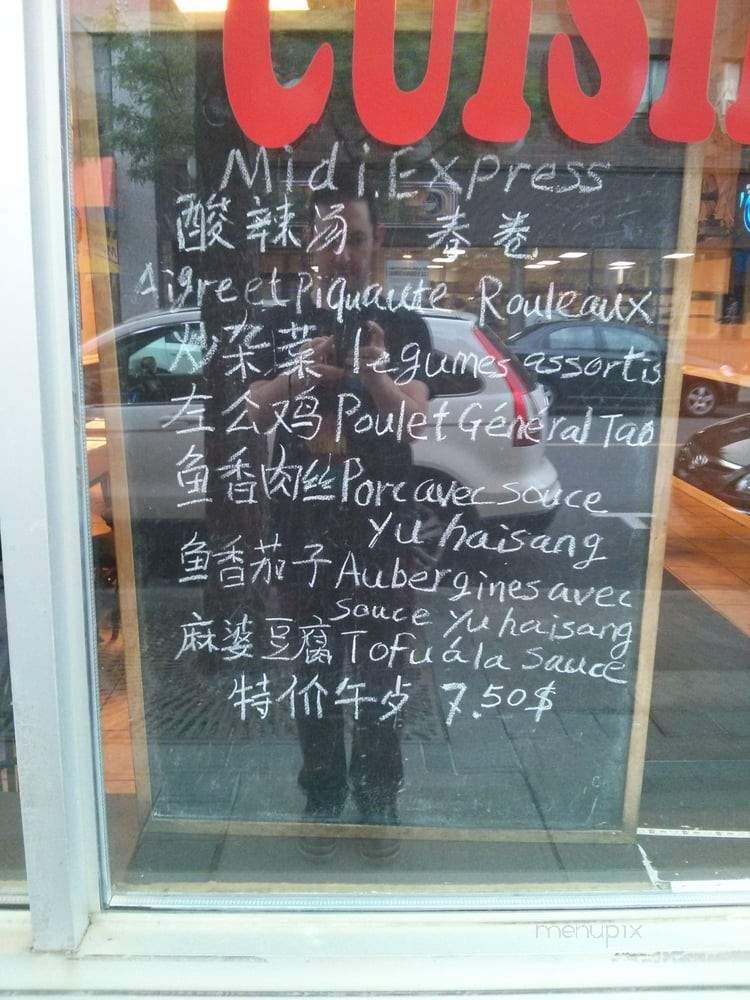 CUISI
Midi.Express
酸辣汤 春卷
Aigre et Piquaute Rouleaux
炒杂菜 legumes assortis
左公鸡 Poulet Général Tao
鱼香肉丝 Porc avec souce
Yu haisang
鱼香茄子 Aubergines avec
souce Yu haisang
麻婆豆腐 Tofu á la sauce
特价午歺 7.50$
menupix